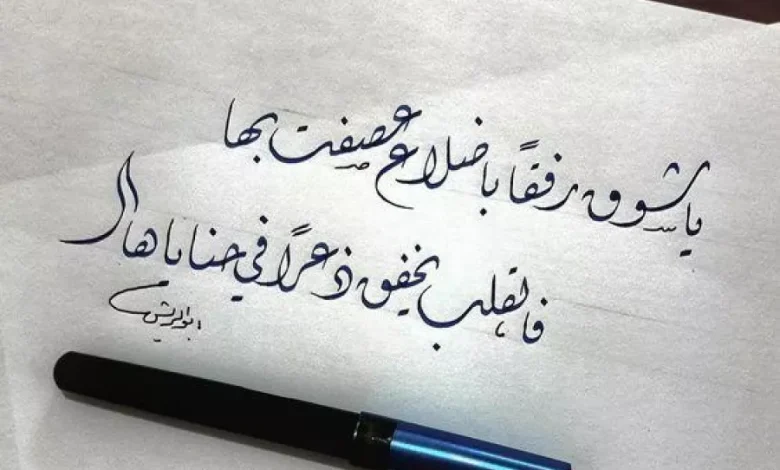 يا شوق رفقاً باضلاع عصفت بها
فالقلب يخفق ذعراً في حناياها
ابو الريش